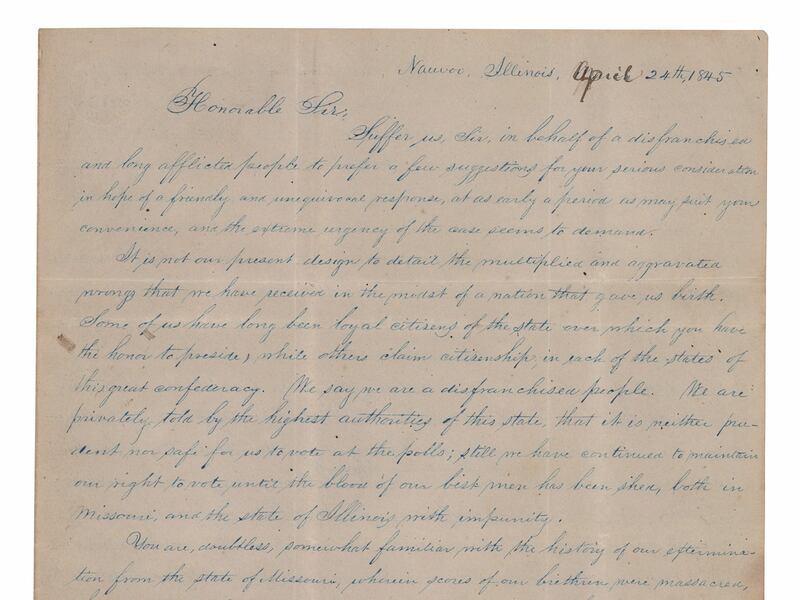 Nauvoo, Illinois, April 24th, 1845
Honorable Sir,
Suffer us, Sir, in behalf of a disfranchised
and long afflicted people to prefer a few suggestions for your serious consideration
in hope of a friendly and unequivocal response, at as early a period as may suit your
convenience, and the extreme urgency of the case seems to demand.
It is not our present design to detail the multiplied and aggravated
wrongs that we have received in the midst of a nation that gave us birth.
Some of us have long been loyal citizens of the state over which you have
the honor to preside, while others claim citizenship in each of the states of
this great confederacy. We say we are a disfranchised people. We are
privately told by the highest authorities of this state, that it is neither pru-
dent nor safe for us to vote at the polls; still we have continued to maintain
our right to vote, until the blood of our best men has been shed, both in
Missouri, and the state of Illinois with impunity.
You are, doubtless, somewhat familiar with the history of our extermina-
tion from the state of Missouri, wherein scores of our brethren were massacred,